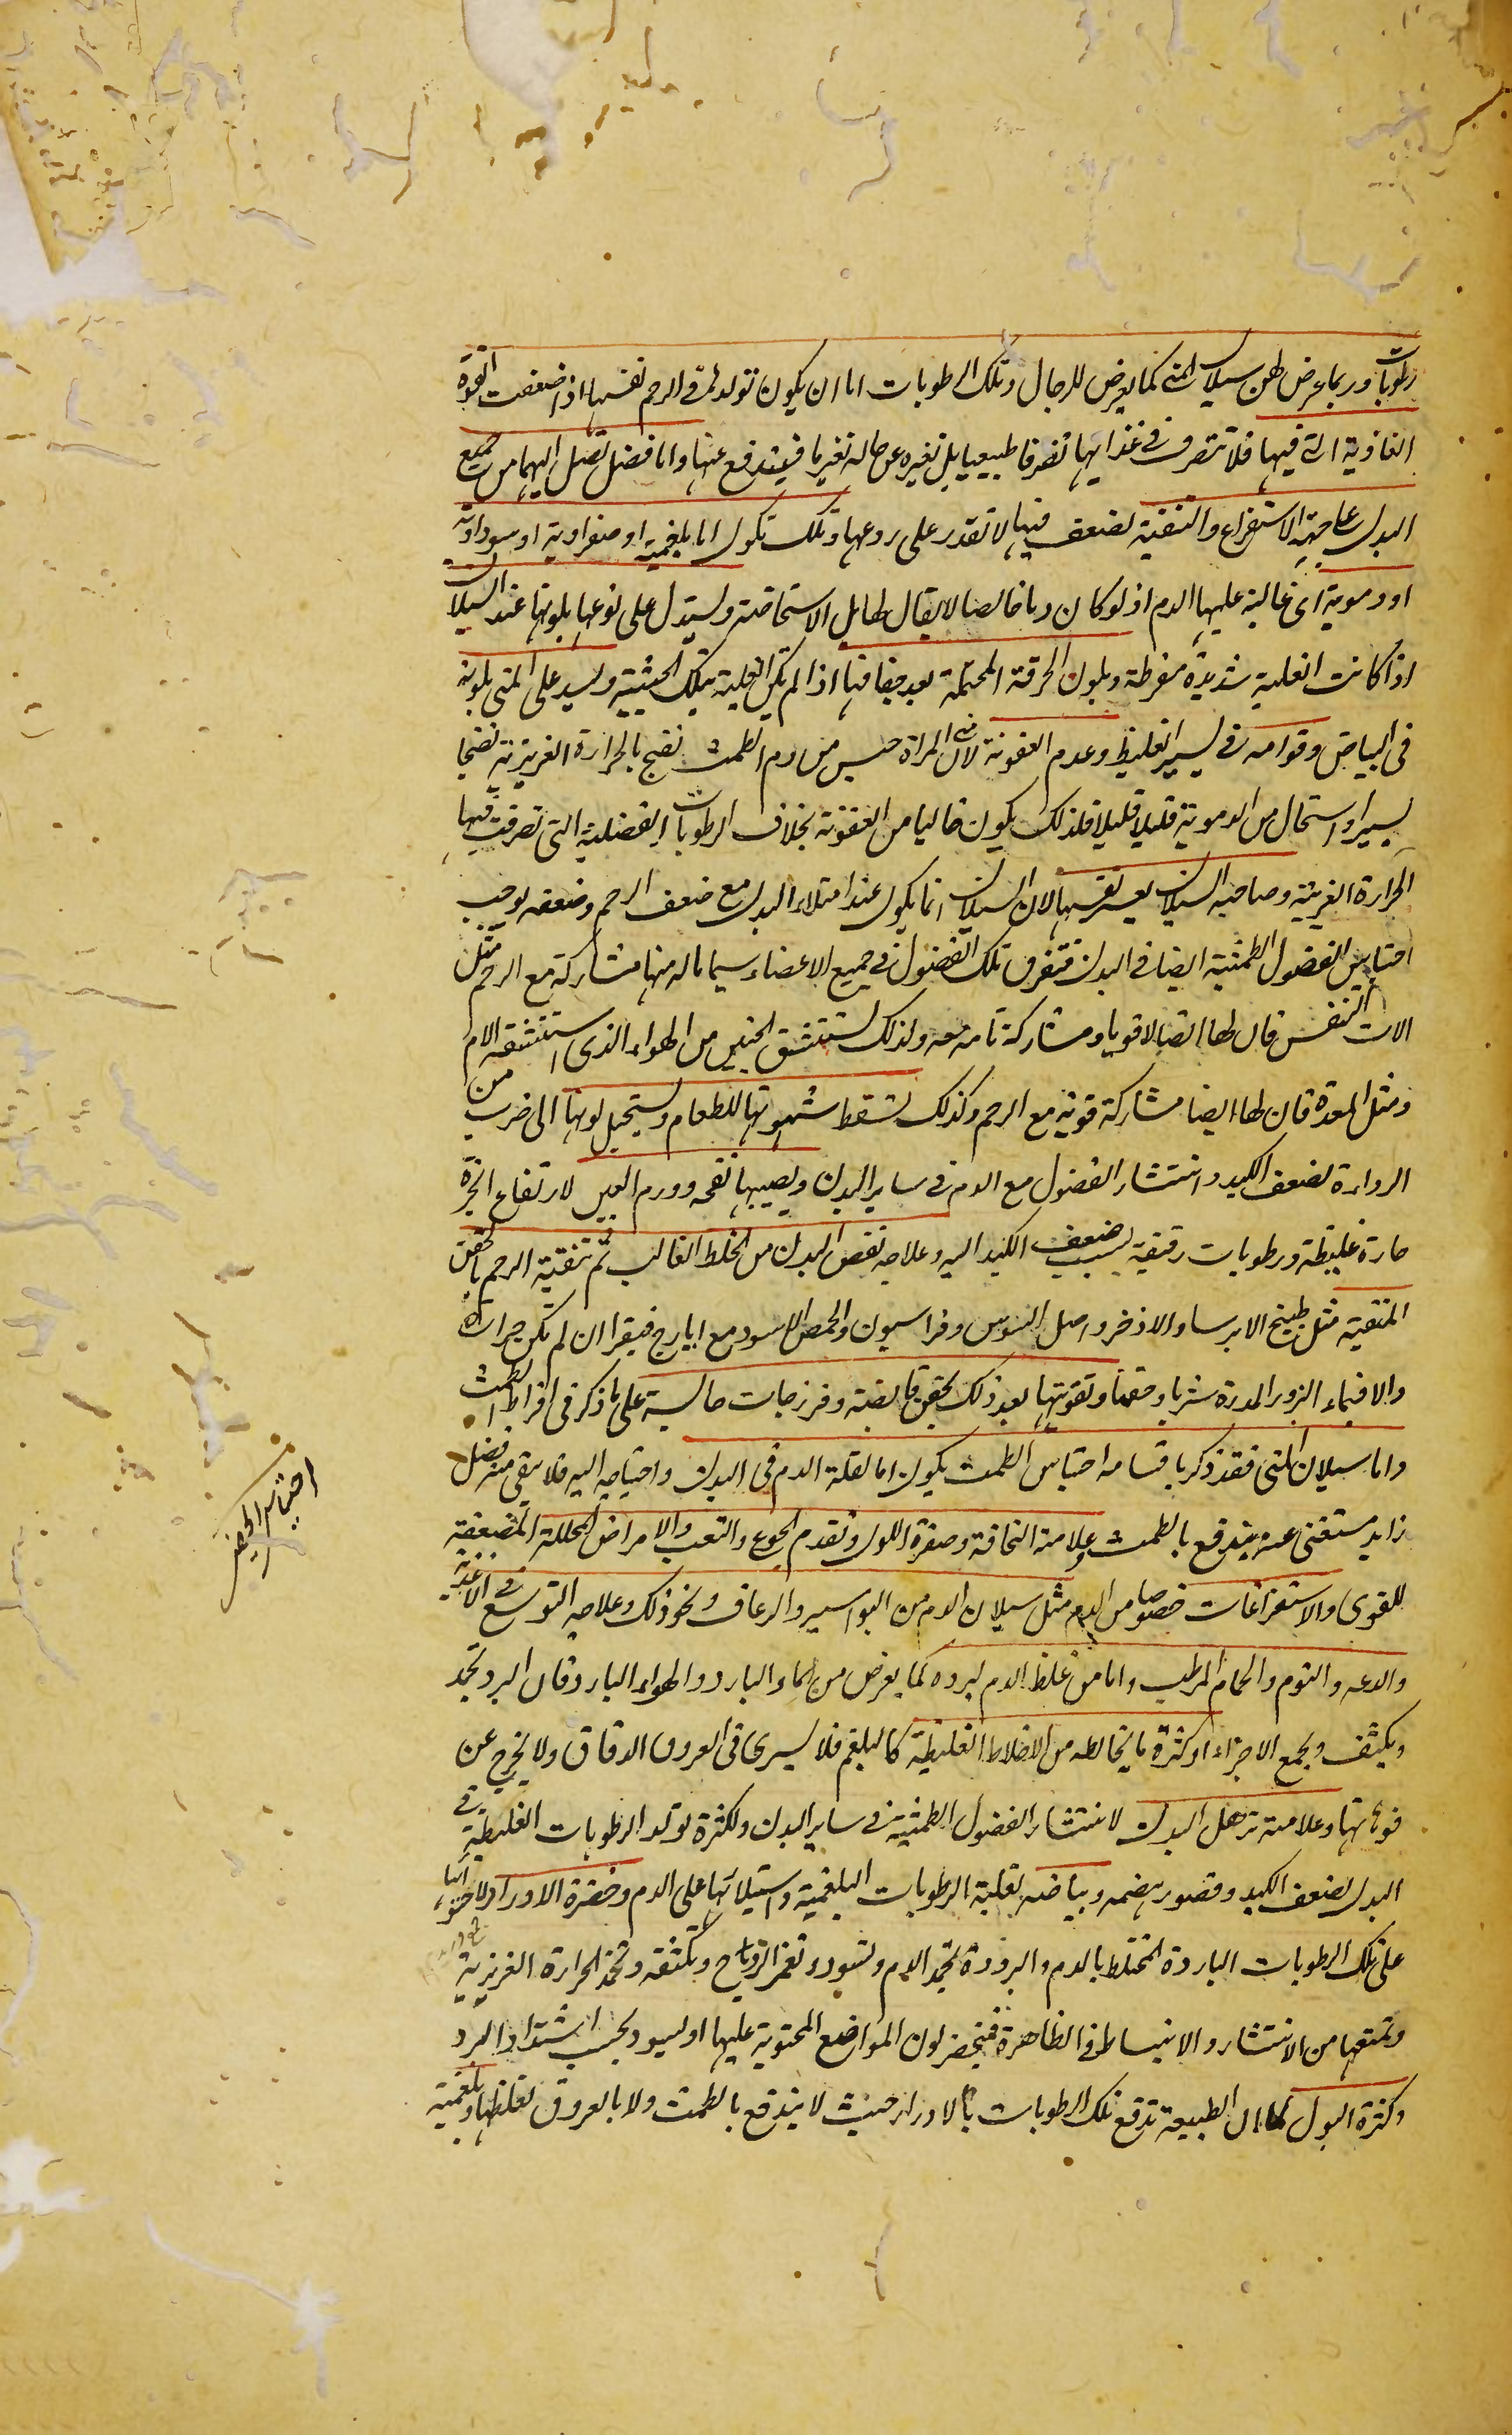 رطوبات وربما عرض لهن سيلان المنى كما يعرض للرجال وتلك الرطوبات اما ان يكون تولدها فى الرحم نفسها اذا ضعفت القوة
الغاذية التى فيها فلا تتصرف فى غذايها تصرفا طبيعيا بل تغيره عن حاله تغيرا ما فيندفع عنها واما فضل تصل اليها من جميع
البدن على جهة الاستفراغ والتنقية لضعف فيها لا تقدر على ردعها وتلك تكون اما بلغمية او صفراوية او سوداوية
او دموية اى غالبة عليها الدم اذ لو كان دما خالصا لا يقال لها بل الاستحاضة ويستدل على نوعها بلونها عند السيلان
اذا كانت الغلبة شديدة مفرطة وبلون الخرقة المحتملة بعد جفافها اذا لم يكن الغلبة بتلك الحيثية ويستدل على المنى بلونه
فى البياض وقوامه فى يسير الغلظ وعدم العفونة لان منى المراة جنس من دم الطمث نضج بالحرارة الغريزية نضجا
يسيرا واستحال من الدموية قليلا قليلا فلذلك يكون خاليا من العفونة بخلاف الرطوبات الفضلية التى تصرفت فيها
الحرارة الغريبة وصاحبة السيلان يعسر نفسها لان السيلان انما يكون عند امتلاء البدن مع ضعف الرحم وضعفه يوجب
احتباس الفضول الطمثية ايضا فى البدن فتفرق تلك الفضول فى جميع الاعضاء سيما ماله منها مشاركة مع الرحم مثل
الات التنفس فان لها اتصالا قويا ومشاركة تامة معه ولذلك يستنشق الجنين من الهواء الذى استنشقته الام
ومثل المعدة فان لها ايضا مشاركة قوية مع الرحم وكذلك تسقط شهوتها للطعام ويستحيل لونها الى ضرب من
الرداءة لضعف الكبد وانتشار الفضول مع الدم فى ساير البدن ويصيبها نفخة وورم العين لارتفاع ابخرة
حارة غليظة ورطوبات رقيقة بسبب ضعف الكبد اليه وعلاجه نفض البدن من الخلط الغالب ثم تنقية الرحم بالحقن
المنقية مثل طبيخ الايرسا والاذخر واصل السوس وفراسيون والحمص الاسود مع ايارج فيقرا ان لم تكن حرارة
والا فبماء البزور المدرة شربا وحقنا وتقويتها بعد ذلك بحقن قابضة وفرزجات حابسة على ما ذكر فى افراط الطمث
واما سيلان المنى فقد ذكر باقسامه احتباس الطمث يكون اما لقلة الدم فى البدن واحتياجه اليه فلا يبقى منه فضل
زايد مستغنى عنه يندفع بالطمث وعلامته النحافة وصفرة اللون وتقدم الجوع والتعب والامراض المحللة المضعفة
للقوى والاستفراغات خصوصا من الدم مثل سيلان الدم من البواسير والرعاف ونحو ذلك وعلاجه التوسع فى الاغذية
والدعه والنوم والحمام المرطب واما من غلظ الدم لبرده كما يعرض من الماء البارد والهواء البارد فان البرد يجمد
ويكثف ويجمع الاجزاء او كثرة ما يخالطه من الاخلاط الغليظة كالبلغم فلا يسرى فى العروق الدقاق ولا يخرج عن
فوهاتها وعلامته ترهل البدن لانتشار الفضول الطمثية فى ساير البدن ولكثرة تولد الرطوبات الغليظة فى
البدن لضعف الكبد وقصور هضمه وبياضه لغلبة الرطوبات البلغمية واستيلائها على الدم وخضرة الاوراد لاحتوائها
على تلك الرطوبات الباردة المختلط بالدم والبرودة تجمد الدم وتسوده وتكثفه وتخمد الحرارة الغريزية
وتمنعها من الانتشار والانبساط فى الظاهرة فيخضر لون المواضع المحتوية عليها او يسود بحسب اشتداد البرد
وكثرة البول لان الطبيعة تدفع تلك الرطوبات بالادرار حيث لا يندفع بالطمث ولا بالعروق لغلظها وبلغمية
احتباس الحيض